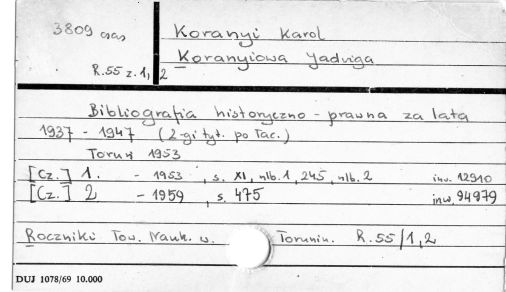 3809 czas
Koranyi Karol
Koranyiowa Jadwiga
R.55 z. 1, 2
Bibliografia historyczno-prawna za lata
1937 - 1947 (2-gi tyt. po łac.)
Toruń 1953
[Cz.] 1. - 1953, s. XI, nlb. 1, 245, nlb. 2 inw. 12910
[Cz.] 2 - 1959, s. 475 inw. 94979
Roczniki Tow. Nauk. w. Toruniu. R.55/1,2
DUJ 1078/69 10.000